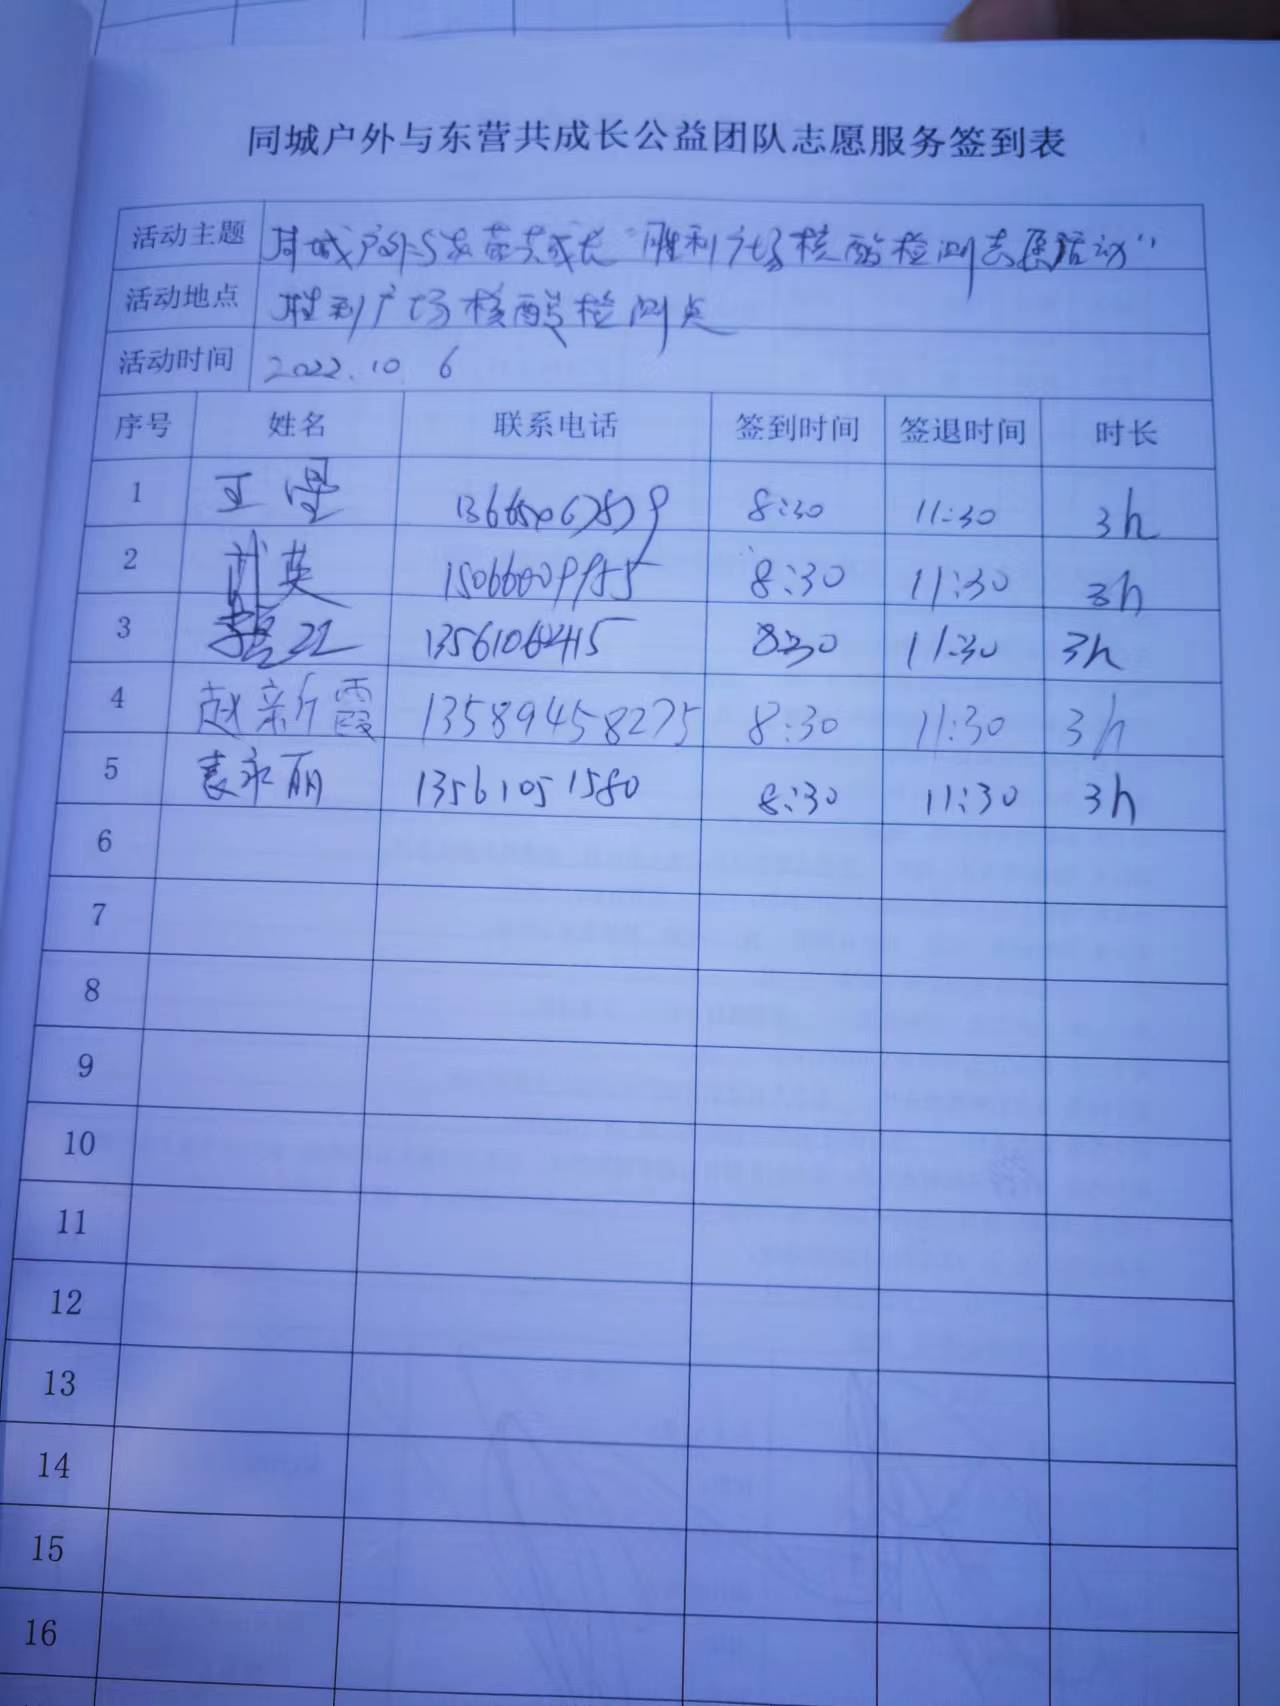 同城户外与东营共成长公益团队志愿服务签到表
活动主题 同城户外与东营共成长“胜利广场核酸检测志愿活动”
活动地点 胜利广场核酸检测点
活动时间 2022.10 6
序号 姓名 联系电话 签到时间 签退时间 时长
1 王 8:30 11:30 3h
2 刘英 15066009955 8:30 11:30 3h
3 13561062415 8:30 11:30 3h
4 赵新霞 13589458275 8:30 11:30 3h
5 袁永丽 13561051580 8:30 11:30 3h
6
7
8
9
10
11
12
13
14
15
16